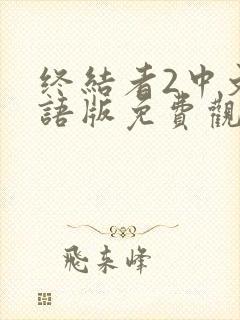 终結者2中文
語版免費觀
飛来峰